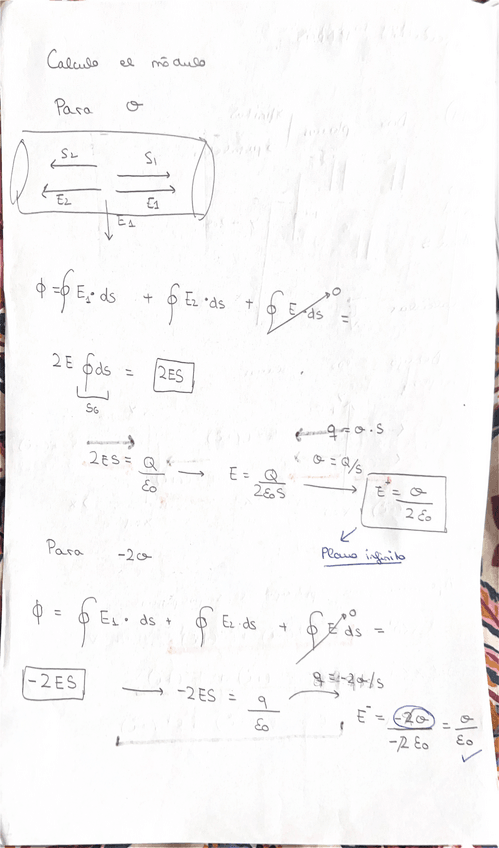 Calculo el módulo
Para σ
S2 S1
E2 E1
E1
ϕ = ∮ E1 · ds + ∮ E2 · ds + ∮ E · ds 0 =
2E ∮ ds = 2ES
q = σ · S
2ES = Q/ε0 → E = Q/2ε0S σ = Q/S → E⁺ = σ/2ε0
Plano infinito
Para -2σ
ϕ = ∮ E1 · ds + ∮ E2 · ds + ∮ E ds 0 =
-2ES → -2ES = q/ε0 q = -2σ/S
E⁻ = -2σ/-2ε0 = σ/ε0 ✓